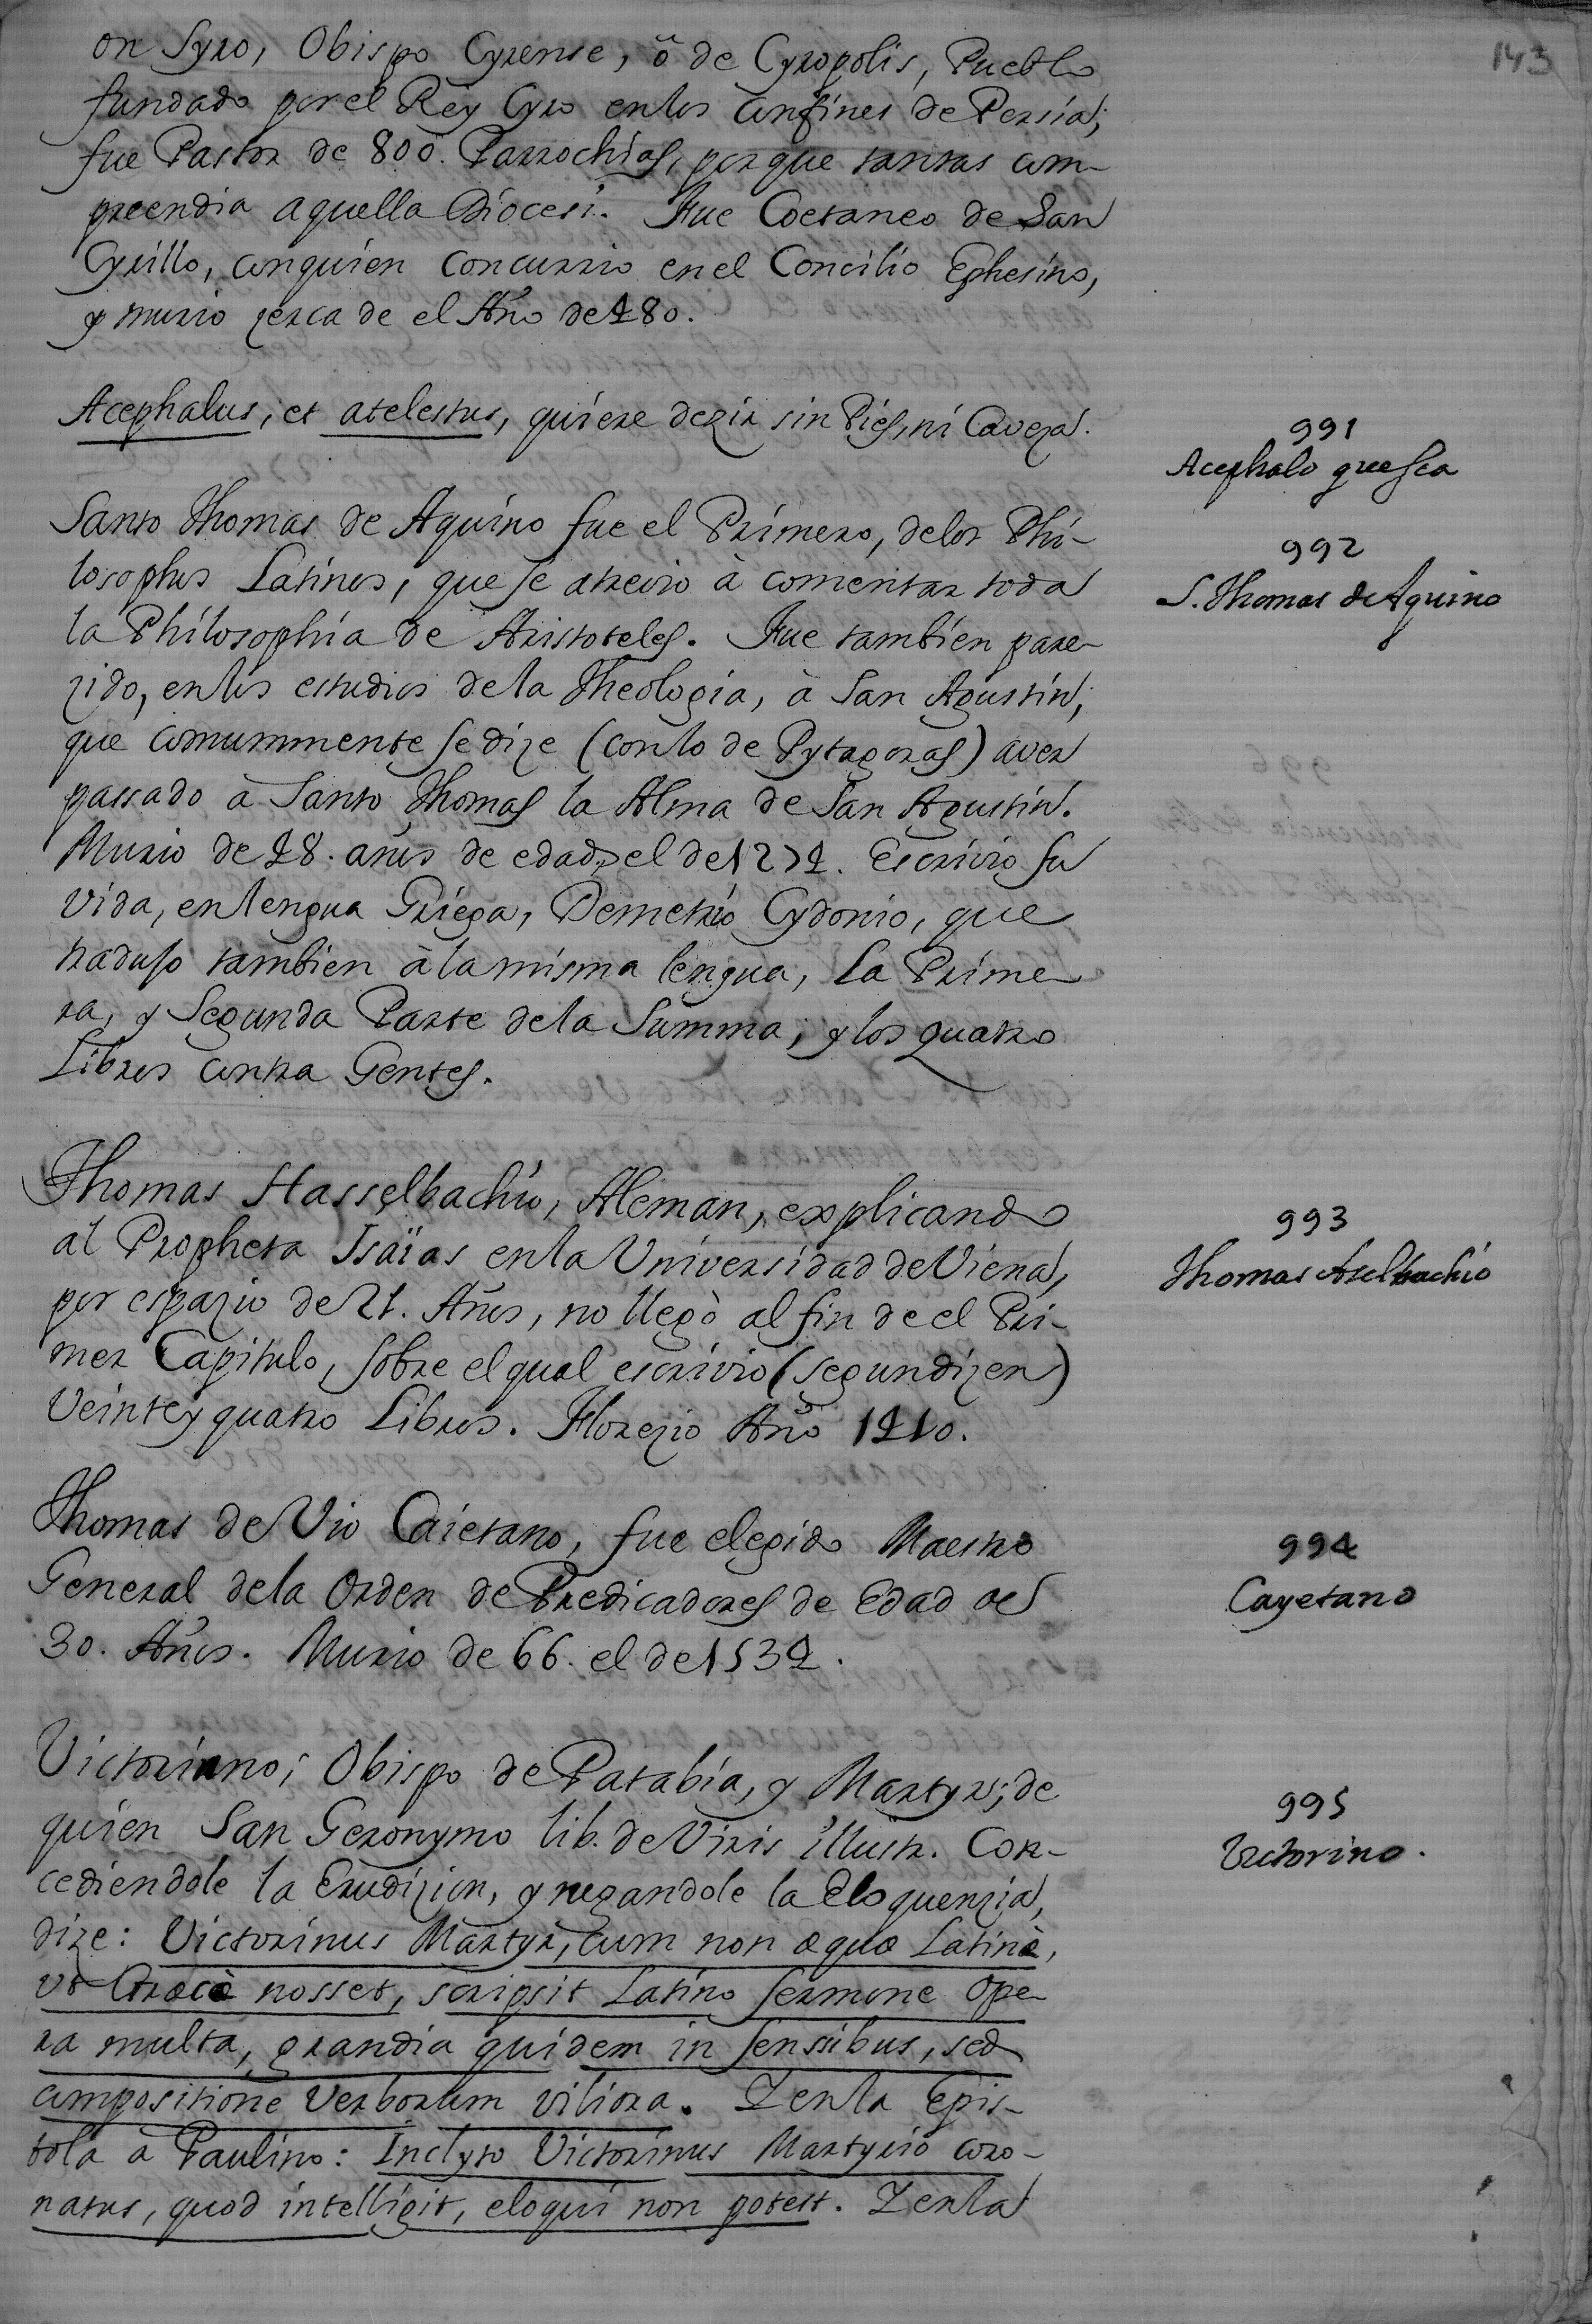 143
on Syro, Obispo Cyrense, ô de Cyropolis, Pueblo
fundado por el Rey Cyro en los confines de Persia;
fue Pastor de 800. Parrochias, porque tantas com-
preendia aquella Diocesi. Fue Coetaneo de San
Cyrillo, con quien concurrio en el Concilio Ephesino,
y murio zerca de el Año de 480.
Acephalus, et atelestus, quiere dezir sin Pies, ni Caveza.
991
Acephalo que sea
Santo Thomas de Aquino fue el Primero, de los Phi-
losophos Latinos, que se atrevio à comentar toda
la Philosophia de Aristoteles. Fue tambien pare-
zido, en los estudios de la Theologia, à San Agustin;
que comummente se dize (con lo de Pytagoras) aver
passado à Santo Thomas la Alma de San Agustin.
Murio de 48. años de edad, el de 1274. Escrivio su
vida, en lengua Griega, Demetrio Cydonio, que
traduso tambien à la misma lengua, la Prime
ra, y Segunda Parte de la Summa; y los quatro
Libros contra Gentes.
992
S. Thomas de Aquino
Thomas Hasselbachio, Aleman, explicando
al Propheta Isaïas en la Universidad de Viena,
por espazio de 21. Años, no llegò al fin de el Pri-
mer Capitulo, sobre el qual escrivio (segun dizen)
Veinte y quatro Libros. Florezio Año 1410.
993
Thomas Aselbachio
Thomas de Vio Caietano, fue elegido Maestro
General de la Orden de Predicadores de Edad de
30. Años. Murio de 66. el de 1534.
994
Cayetano
Victorinno; Obispo de Patabia, y Martyr; de
quien San Geronymo lib. de Viris illustr. Con-
cediendole la Erudizion, y negandole la Eloquenzia,
dize: Victorinus Martyr, cum non æquæ Latinè,
ut Græcè nosset, scripsit Latino sermone Ope
ra multa, grandia quidem in sensibus, sed
compositione Verborum viliora. Y en la Epis-
tola a Paulino: Inclyto Victorinus Martyrio coro-
natus, quod intelligit, eloqui non potest. Y en la
995
Victorino.